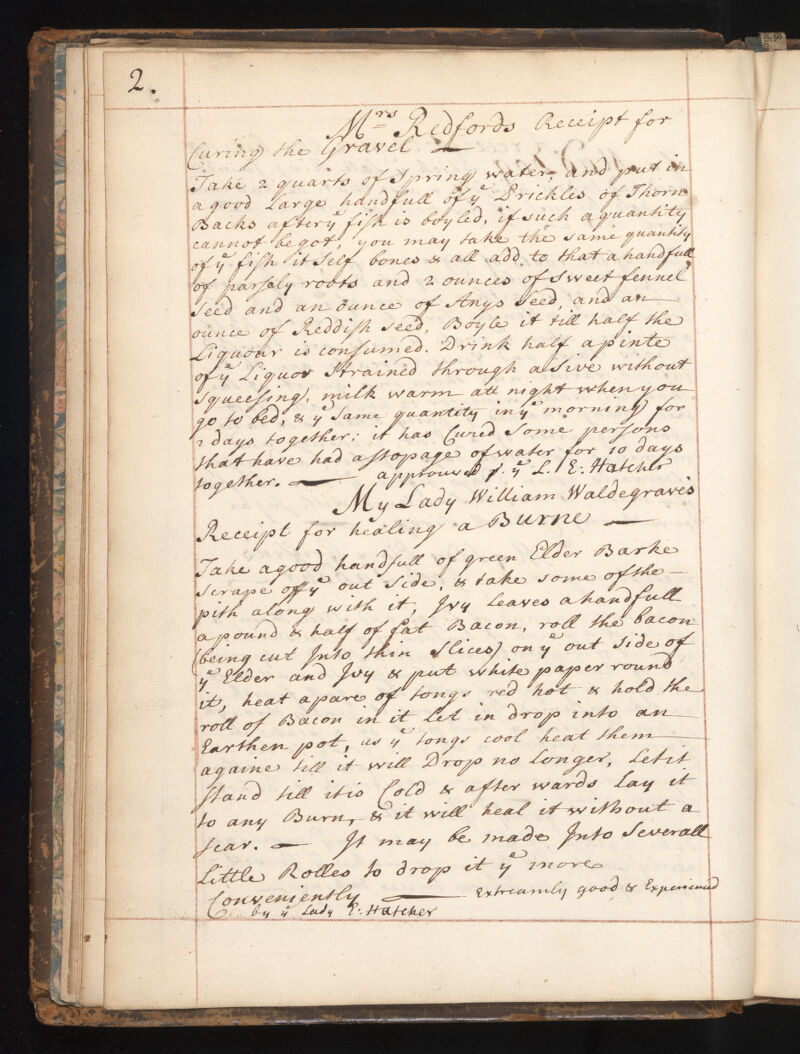 2.
Mrs Redfords Receipt for
Curing the Gravel
Take 2 quarts of Spring water, and put in
a good Large handfull of ye Prickles of Thorn
Backs after ye fish is boyled, if such a quantity
cannot be got, you may take the same quantity
of ye fish it Self bones & all add to that a handfull
of parsely roots and 2 ounces of Sweet fennel
Seed and an ounce of Anys Seed, and an
ounce of Reddish Seed, Boyle it till half the
Liquour is consumed. Drink half a pinte
of ye Liquor Strained through a Sive without
Squeesing, milk warm att night when you
go to bed, & ye Same quantity in ye morning for
2 days together; it has Cured Some persons
that have had a stopage of water for 10 days
together. — approuved p. ye L. E: Hatcher
My Lady William Waldegraves
Receipt for healing a Burne —
Take a good handfull of green Elder Barke
Scrape off ye out Side, & take some of the
pith along with it, Ivy Leaves a handfull
a pound & half of fat Bacon, roll the bacon
(being cut Into thin Slices) on ye out Side of
ye Elder and Ivy & put white paper round
it, heat a pare of tongs red hot & hold the
roll of Bacon in it Let in drop into an
Earthen pot, as ye tongs cool heat them
againe till it will Drop no Longer, Let it
Stand till it is Cold & after wards Lay it
to any Burn, & it will heal it without a
Scar. — It may be made Into Severall
Little Rolles to drop it ye more
Conveniently — Extreamly good & Experienced
by ye Lady E: Hatcher